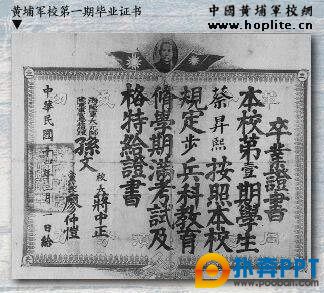 黄埔军校第一期毕业证书
中國黄埔軍校網
www.hoplite.cn
卒業證書
本校第壹期學生
蔡昇熙按照本校
規定步兵科教育
修學期满考試及
格特給證書
孫文
校長 蔣中正
廖仲愷
中華民國
日給
扑奔PPT
www.poopan.com